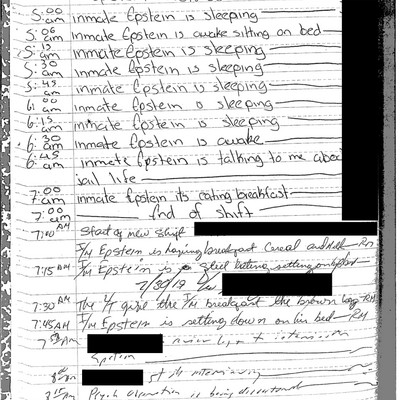 5:00 am inmate Epstein is sleeping
5:06 am inmate Epstein is awake sitting on bed
5:15 am inmate Epstein is sleeping
5:30 am inmate Epstein is sleeping
5:45 am inmate Epstein is sleeping
6:00 am inmate Epstein is sleeping
6:15 am inmate Epstein is sleeping
6:30 am inmate Epstein is awake
6:45 am inmate Epstein is talking to me about
jail life
7:00 am inmate Epstein its eating breakfast
7:00 am End of shift
7:00 AM Start of new shift
I/M Epstein is having breakfast cereal and milk
7:15 AM I/M Epstein is still setting on
7/30/19
7:30 AM The I/M breakfast the brown bag
7:45 AM I/M Epstein is setting down on his bed
Epstein
Psych observation is being